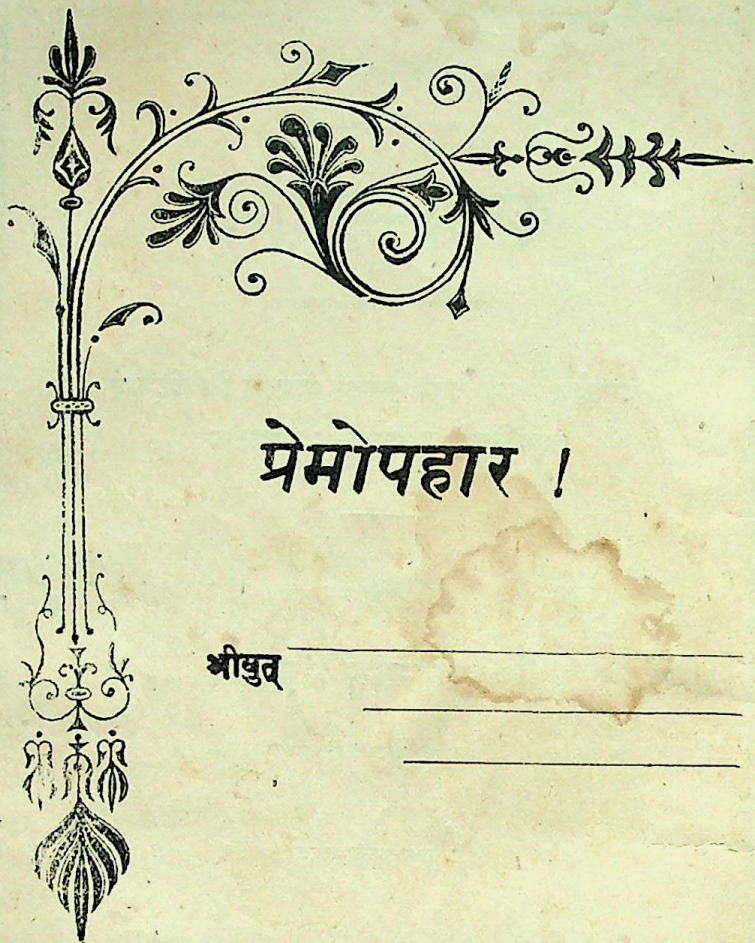 प्रेमोपहार !
श्रीयुत्